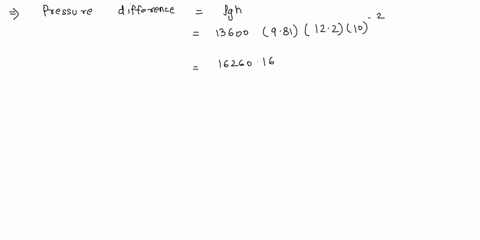 ⇒ Pressure difference = ρgh
= 13600 (9.81) (12.2) (10)⁻²
= 16260.16